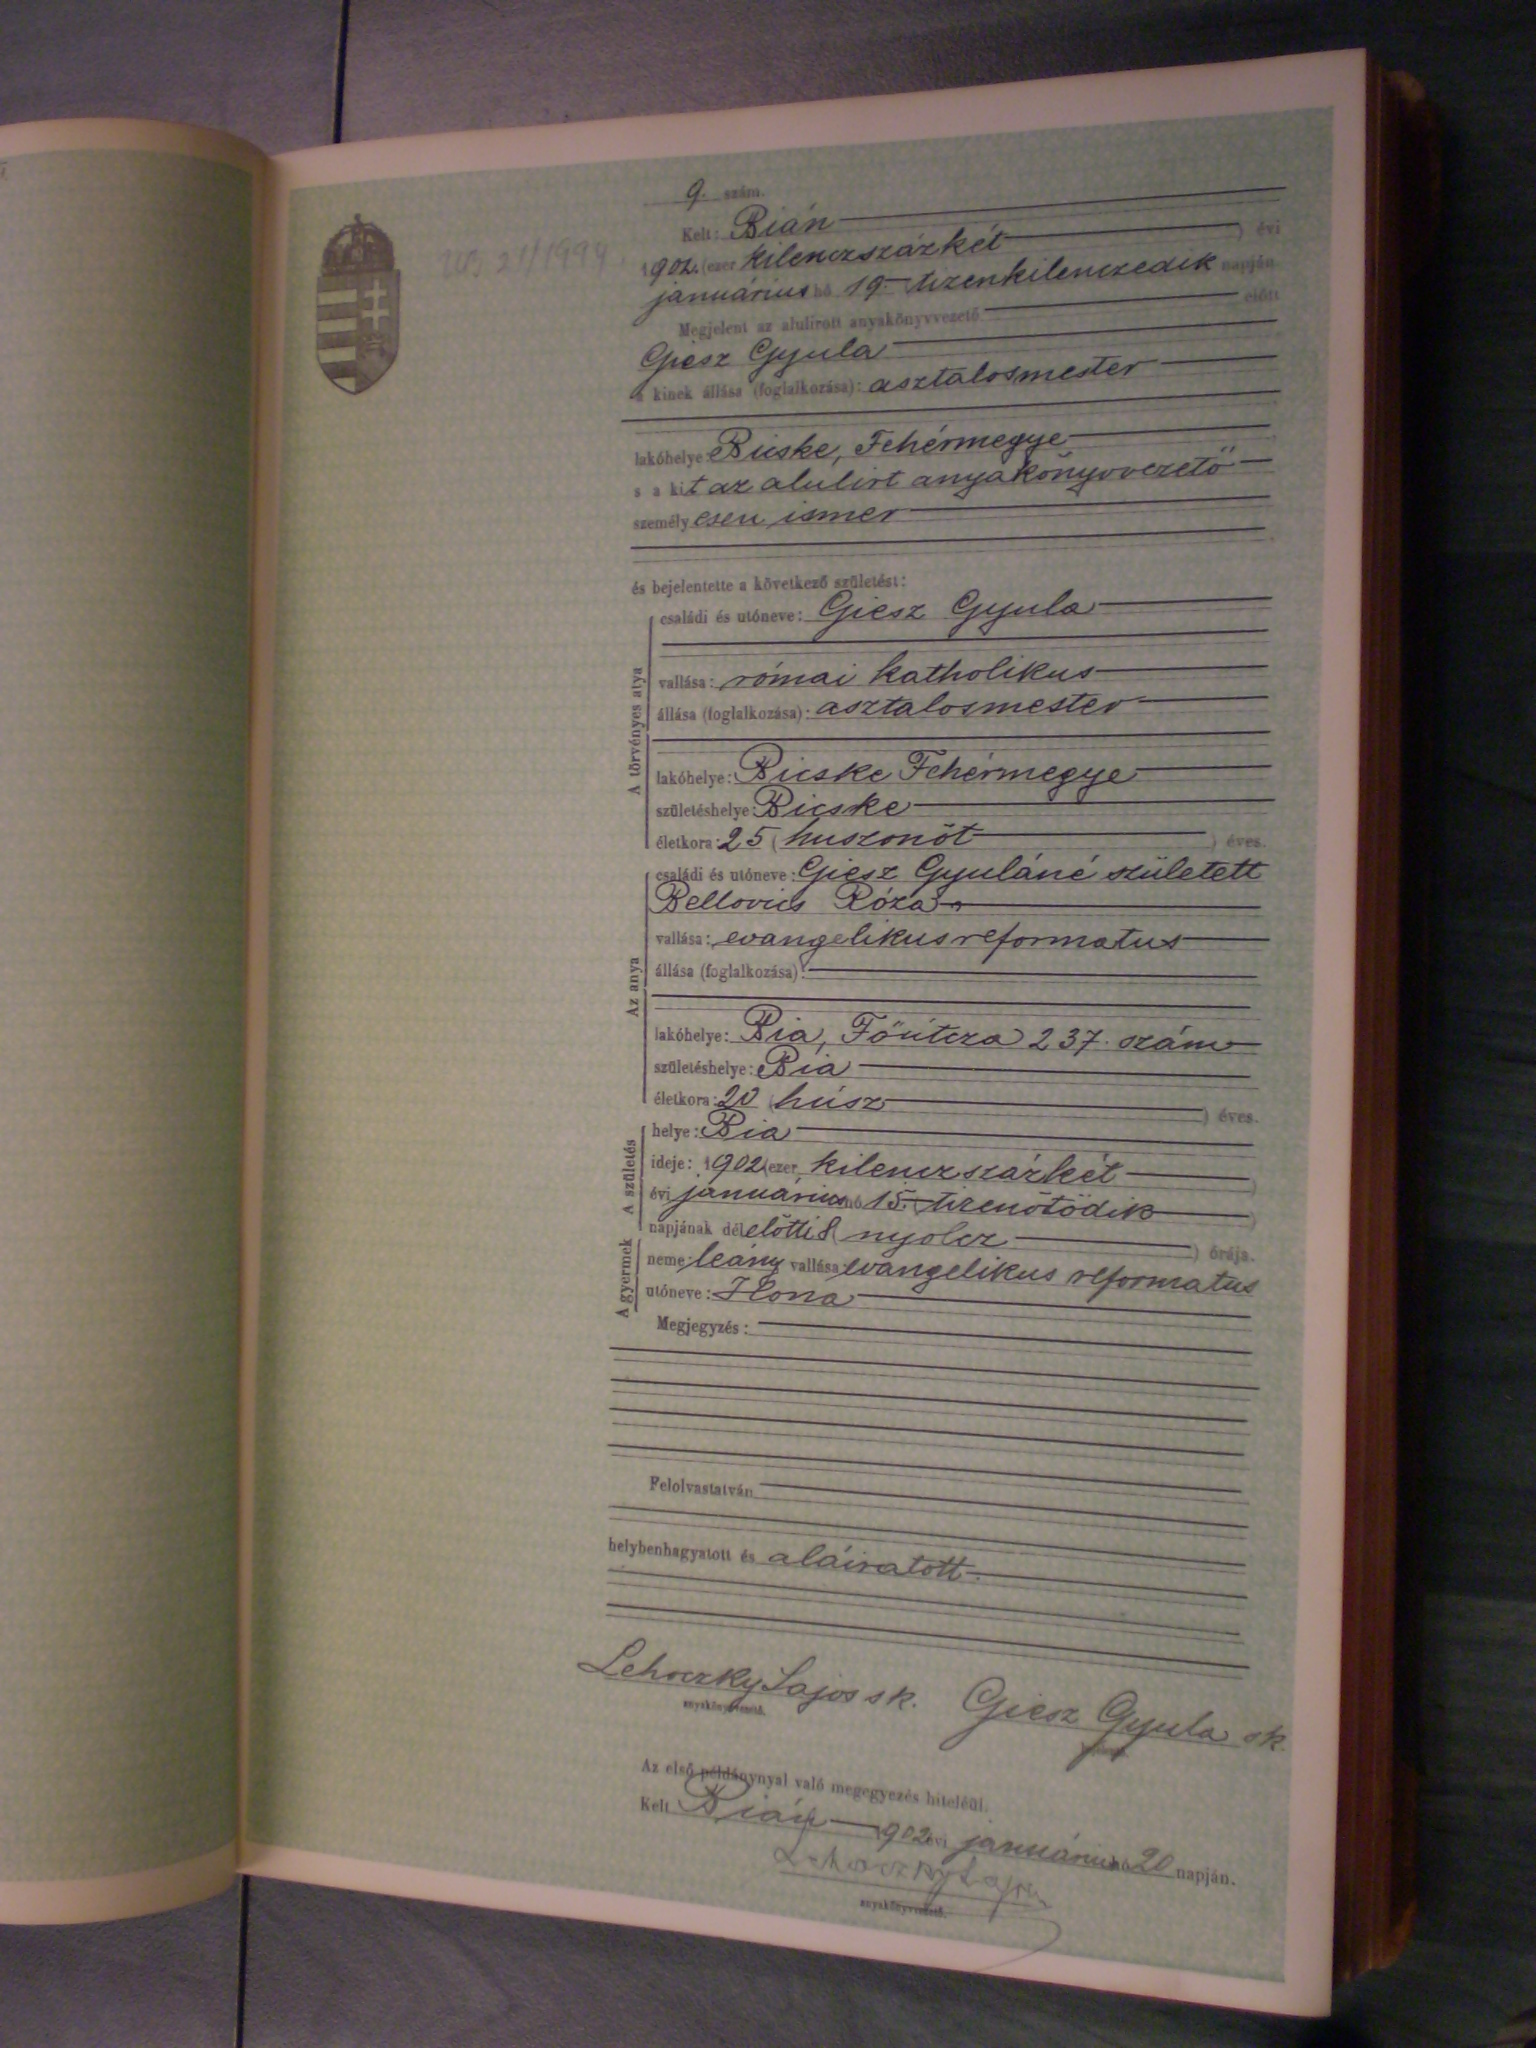 9. szám.
Kelt: Bián
1902. (ezer kilenczszázkét) évi
januárius hó 19. tizenkilenczedik napján.
Megjelent az alulírott anyakönyvvezető előtt
Giesz Gyula
a kinek állása (foglalkozása): asztalosmester
lakóhelye: Bicske, Fehérmegye
s a kit az alulirt anyakönyvvezető
személyesen ismer
és bejelentette a következő születést:
A törvényes atya
családi és utóneve: Giesz Gyula
vallása: római katholikus
állása (foglalkozása): asztalosmester
lakóhelye: Bicske Fehérmegye
születéshelye: Bicske
életkora: 25 (huszonöt) éves.
Az anya
családi és utóneve: Giesz Gyuláné született
Bellovics Róza
vallása: evangelikus reformatus
állása (foglalkozása):
lakóhelye: Bia, Főutcza 237. szám
születéshelye: Bia
életkora: 20 (húsz) éves.
A születés
helye: Bia
ideje: 1902 (ezer kilenczszázkét)
évi januárius hó 15. (tizenötödik)
napjának délelőtti 8 (nyolcz) órája.
A gyermek
neme: leány vallása: evangelikus reformatus
utóneve: Ilona
Megjegyzés:
Felolvastatván
helybenhagyatott és aláiratott.
Lehoczky Lajos sk. Giesz Gyula sk.
anyakönyvvezető.
Az első példánynyal való megegyezés hiteléül.
Kelt Bián 1902 évi januárius hó 20 napján.
Lehoczky Lajos
anyakönyvvezető.